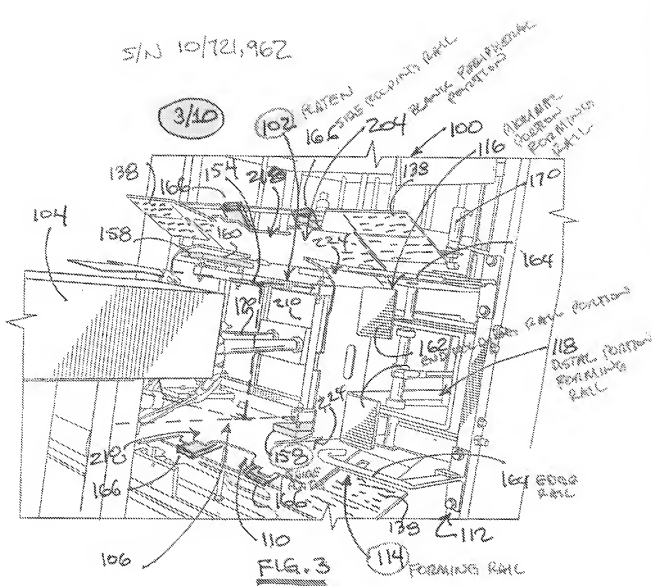 S/N 10/721,962
3/10
102 PLATEN
166 SIDE FOLDING RAIL
204 BLANK PERIPHERAL PORTION
100
116
PORTION
FORMING
RAIL
138
166
154
218
138
170
104
158
160
224
164
120
210
162
END RAIL PORTION
118
DISTAL PORTION
FORMING
RAIL
224
218
158
166
166
164 EDGE
RAIL
138
110
112
106
114 FORMING RAIL
FIG. 3